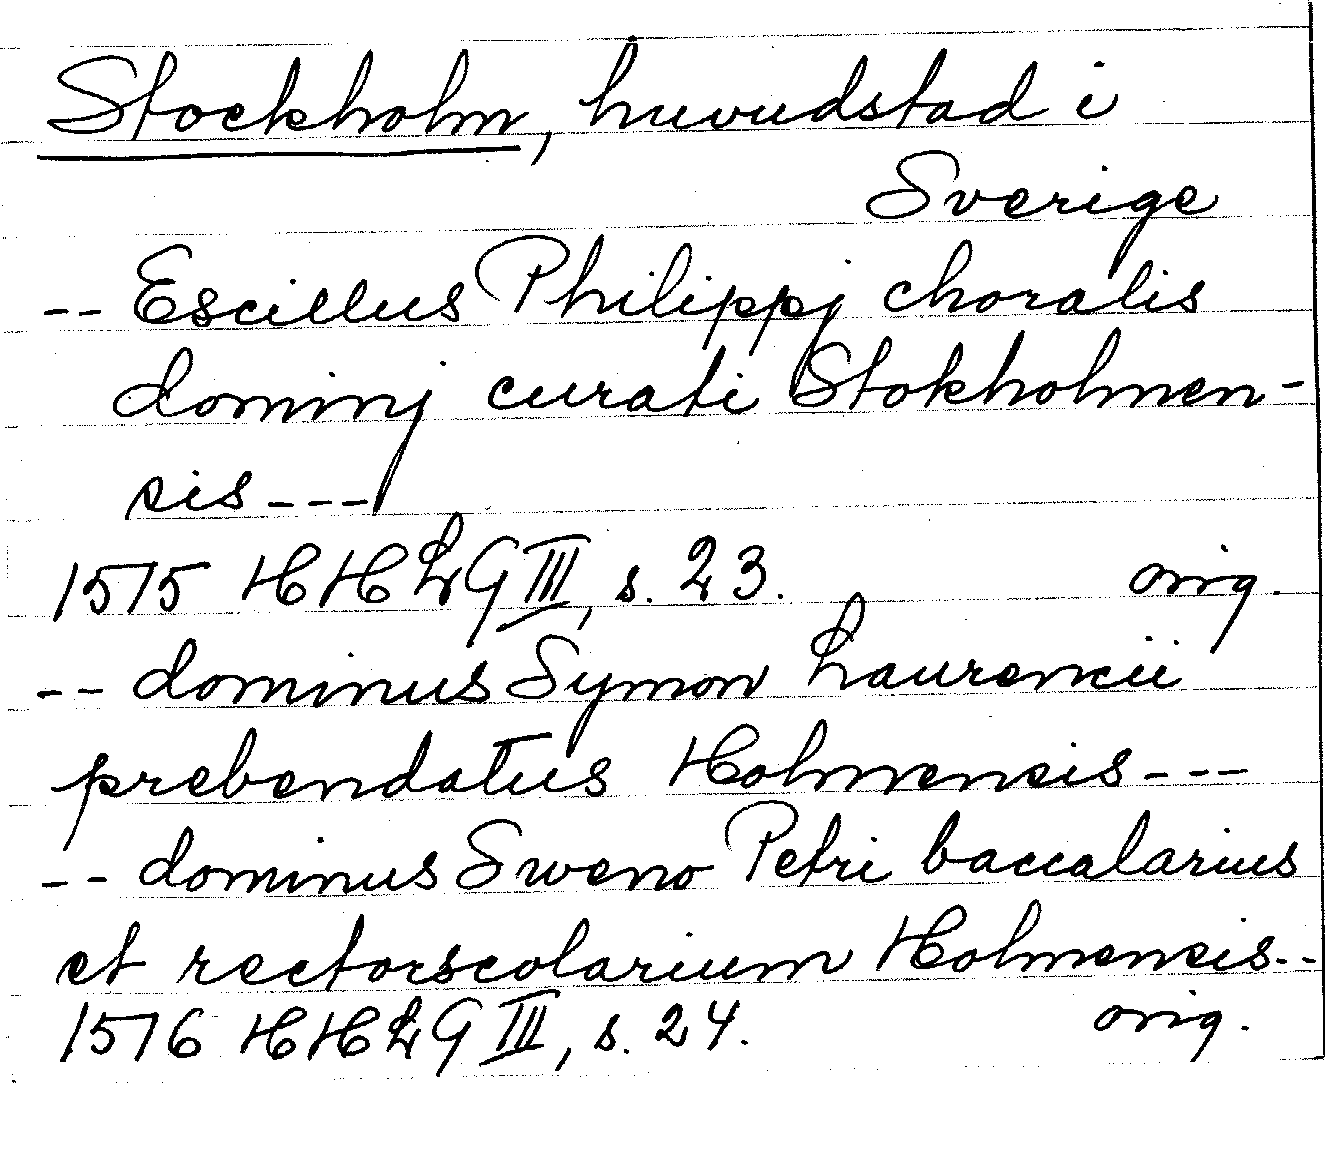 Stockholm, huvudstad i
Sverige
-- Escillus Philippj choralis
dominj curati Stokholmen-
sis ---
1515 HHLG III, s. 23. orig.
-- dominus Symon Laurencii
prebendatus Holmensis ---
-- dominus Sweno Petri baccalarius
et rectorscolarium Holmensis--
1516 HHLG III, s. 24. orig.